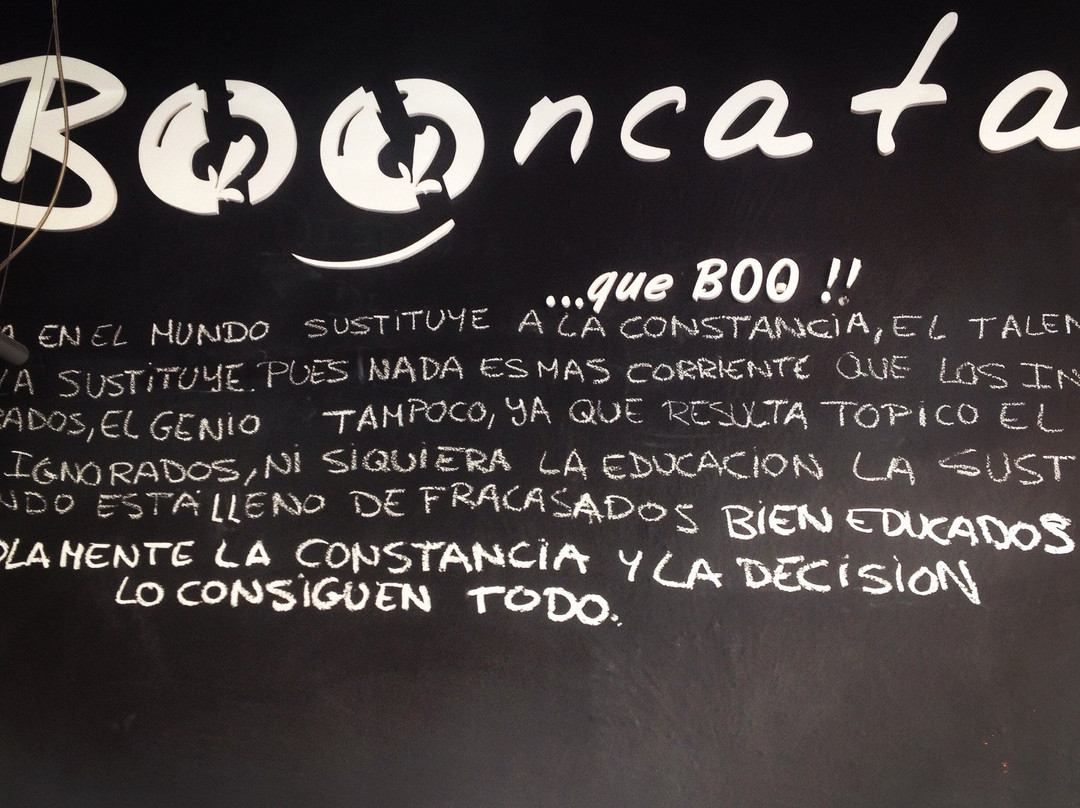 BOOncata
...que BOO !!
EN EL MUNDO SUSTITUYE A LA CONSTANCIA, EL TALEN
LA SUSTITUYE PUES NADA ES MAS CORRIENTE QUE LOS IN
RADOS, EL GENIO TAMPOCO, YA QUE RESULTA TOPICO EL
IGNORADOS, NI SIQUIERA LA EDUCACION LA SUST
NDO ESTA LLENO DE FRACASADOS BIEN EDUCADOS
OLAMENTE LA CONSTANCIA Y LA DECISION
LO CONSIGUEN TODO.